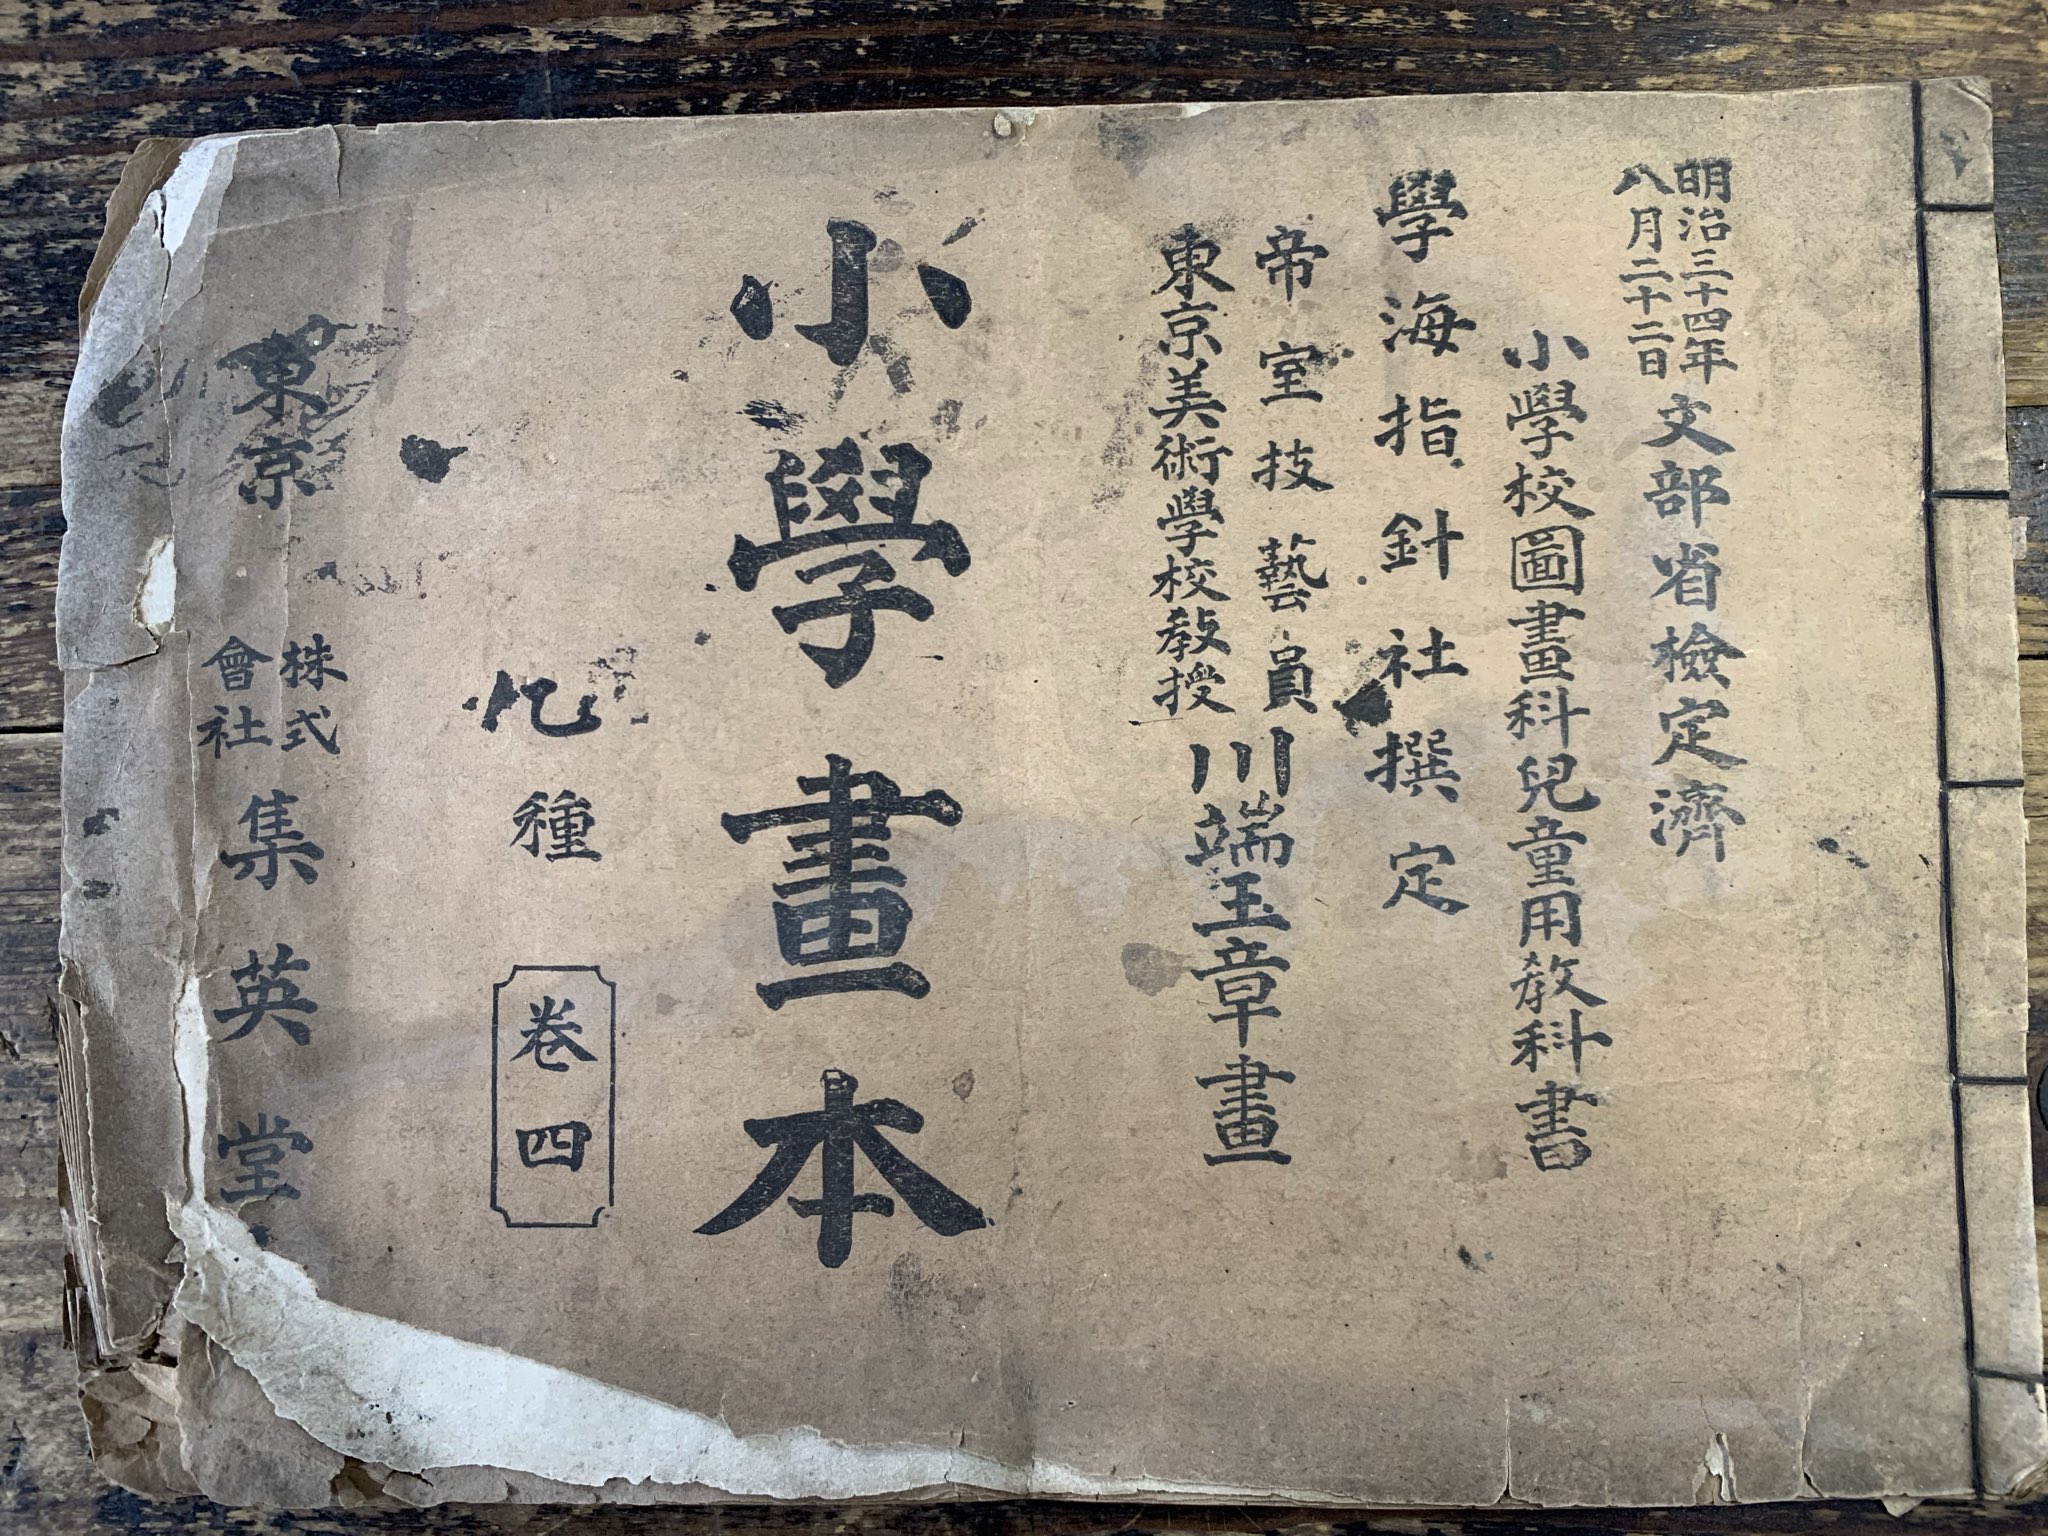 明治三十四年
八月二十二日
文部省檢定濟
小學校圖畫科兒童用教科書
學海指針社撰定
帝室技藝員
東京美術學校教授
川端玉章畫
小學畫本
乙種
卷四
東京
株式
會社
集英堂